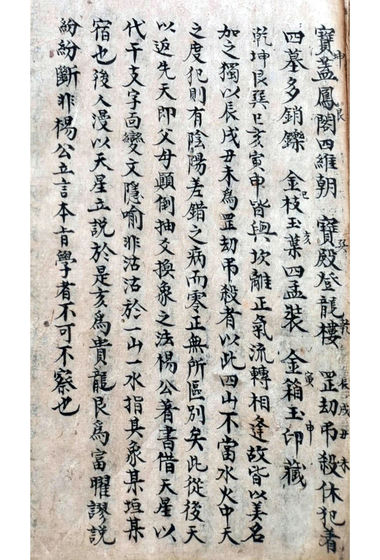 申 艮 巽 乾 辰 戌 丑 未
寶蓋鳳閣四維朝 寶殿登龍樓 罡劫弔殺休犯着
巳 亥 寅 申
四墓多銷鑠 金枝玉葉四孟裝 金箱玉印藏
乾坤艮巽巳亥寅申皆與坎離正氣流轉相逢故皆以美名
加之獨以辰戌丑未為罡劫弔殺者以此四山不當水火中天
之度犯則有陰陽差錯之病而零正無所區別矣此從後天
以返先天即父母顛倒抽爻換象之法楊公著書借天星以
代干支字面變文隱喻非沾沾於一山一水指其象某垣某
宿也後人漫以天星立說於是亥為貴龍艮為富曜謬說
紛紛斷非楊公立言本旨學者不可不察也